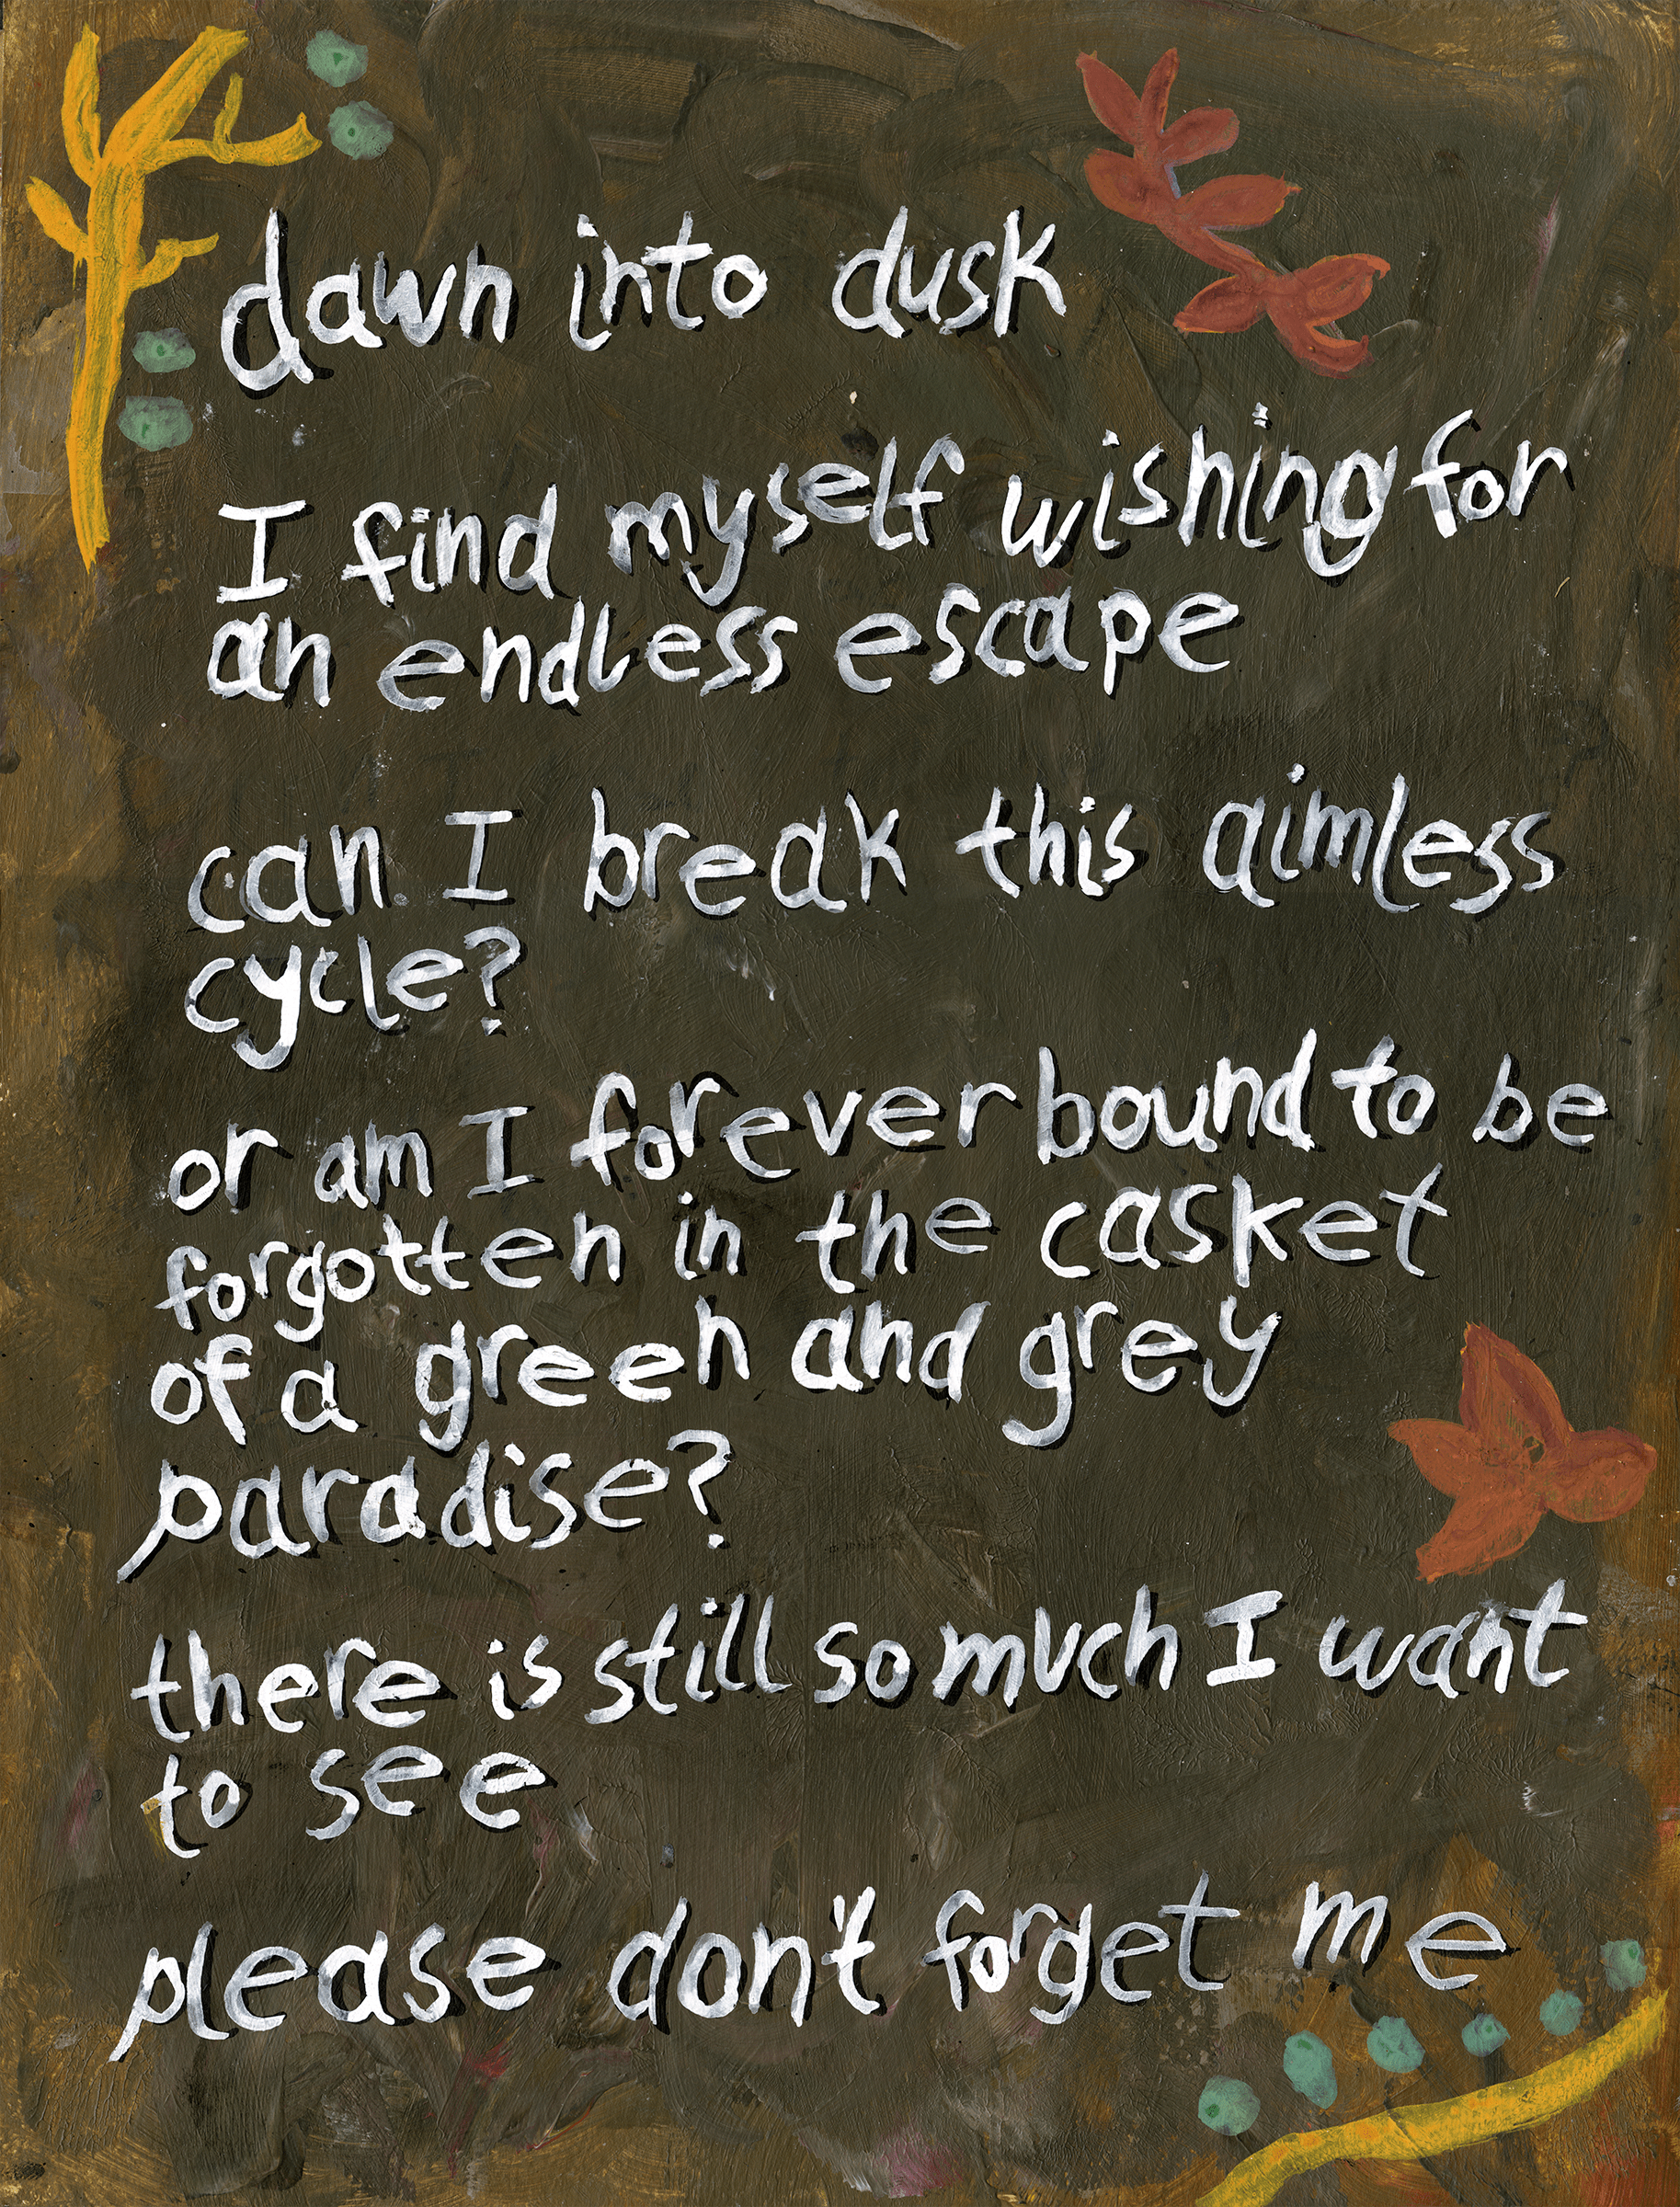 dawn into dusk
I find myself wishing for
an endless escape
can I break this aimless
cycle?
or am I forever bound to be
forgotten in the casket
of a green and grey
paradise?
there is still so much I want
to see
please don't forget me